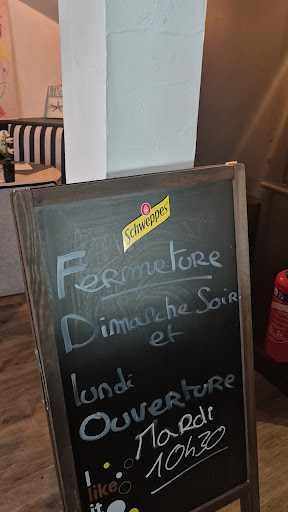 Schweppes
Fermeture
Dimanche Soir
et
lundi
Ouverture
Mardi
10h30
I
like
it